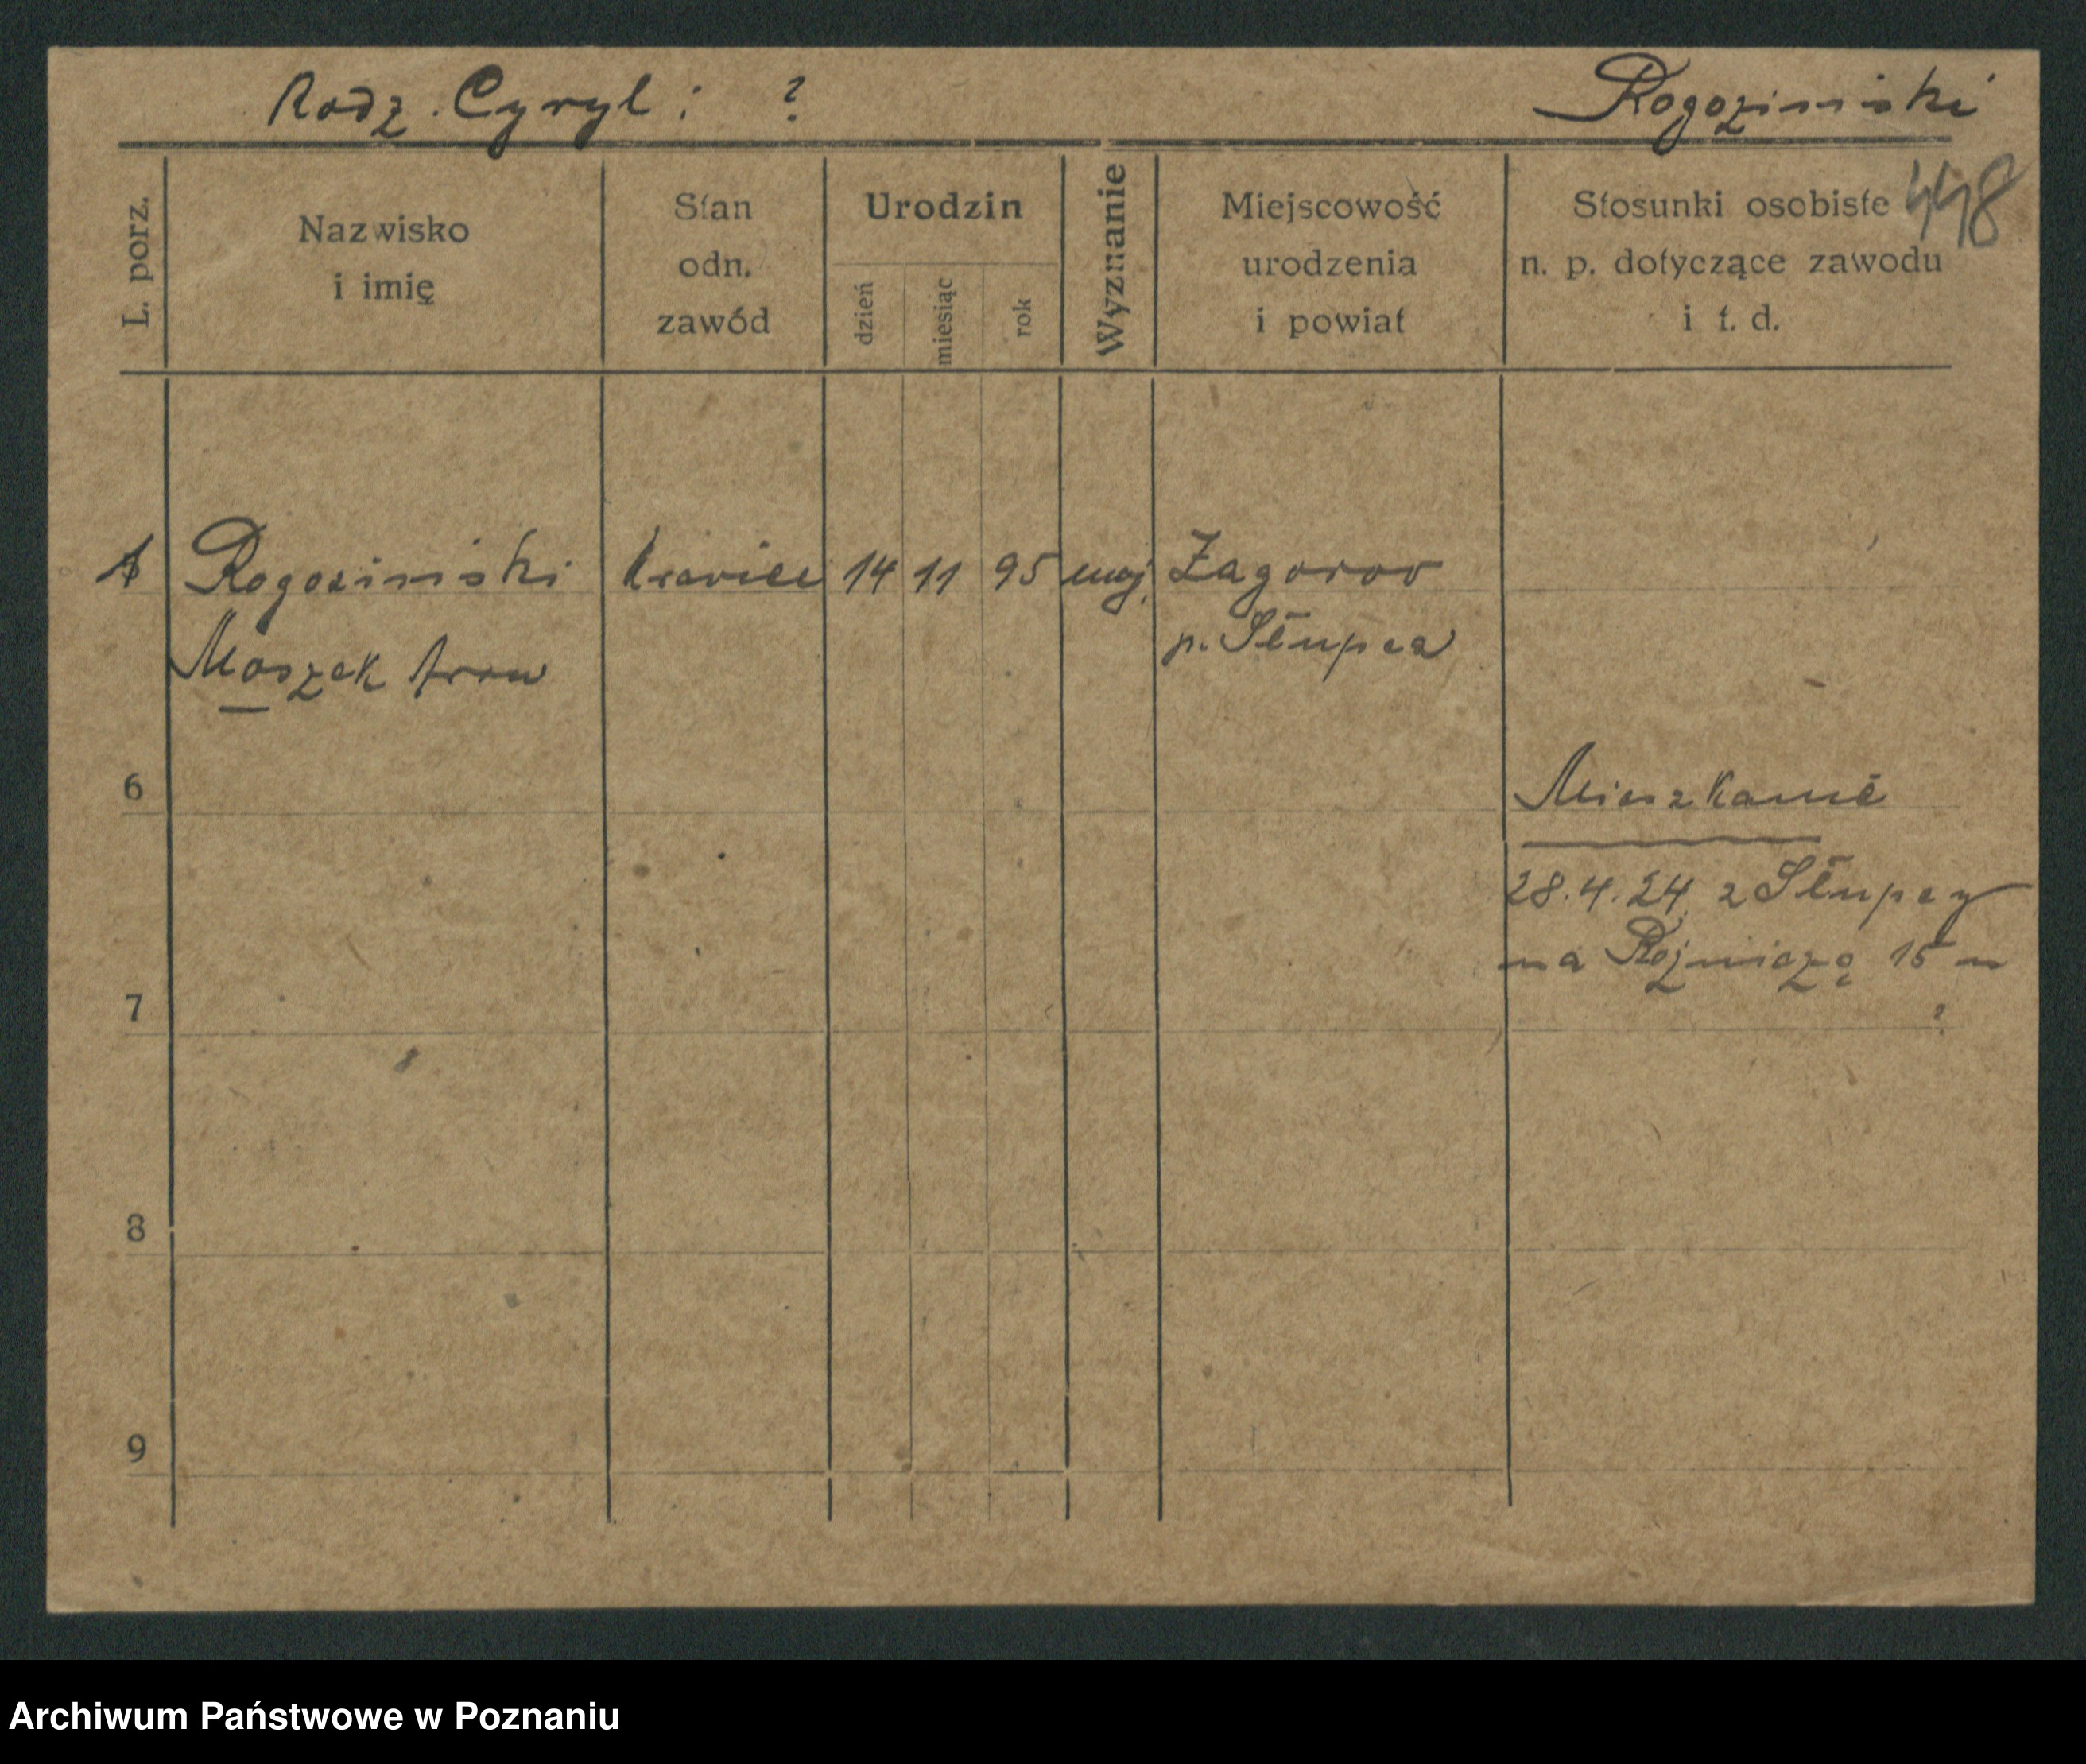 Rodz. Cyryl i ?
Rogoziński
448
L. porz.
Nazwisko
i imię
Stan
odn.
zawód
Urodzin
dzień
miesiąc
rok
Wyznanie
Miejscowość
urodzenia
i powiat
Stosunki osobiste
n. p. dotyczące zawodu
i t. d.
1 Rogoziński krawiec 14 11 95 moj. Zagorov
Moszek Aron
p. Słupca
6
Mieszkanie
28.4.24 z Słupcy
na 15 m
?
7
8
9
Archiwum Państwowe w Poznaniu